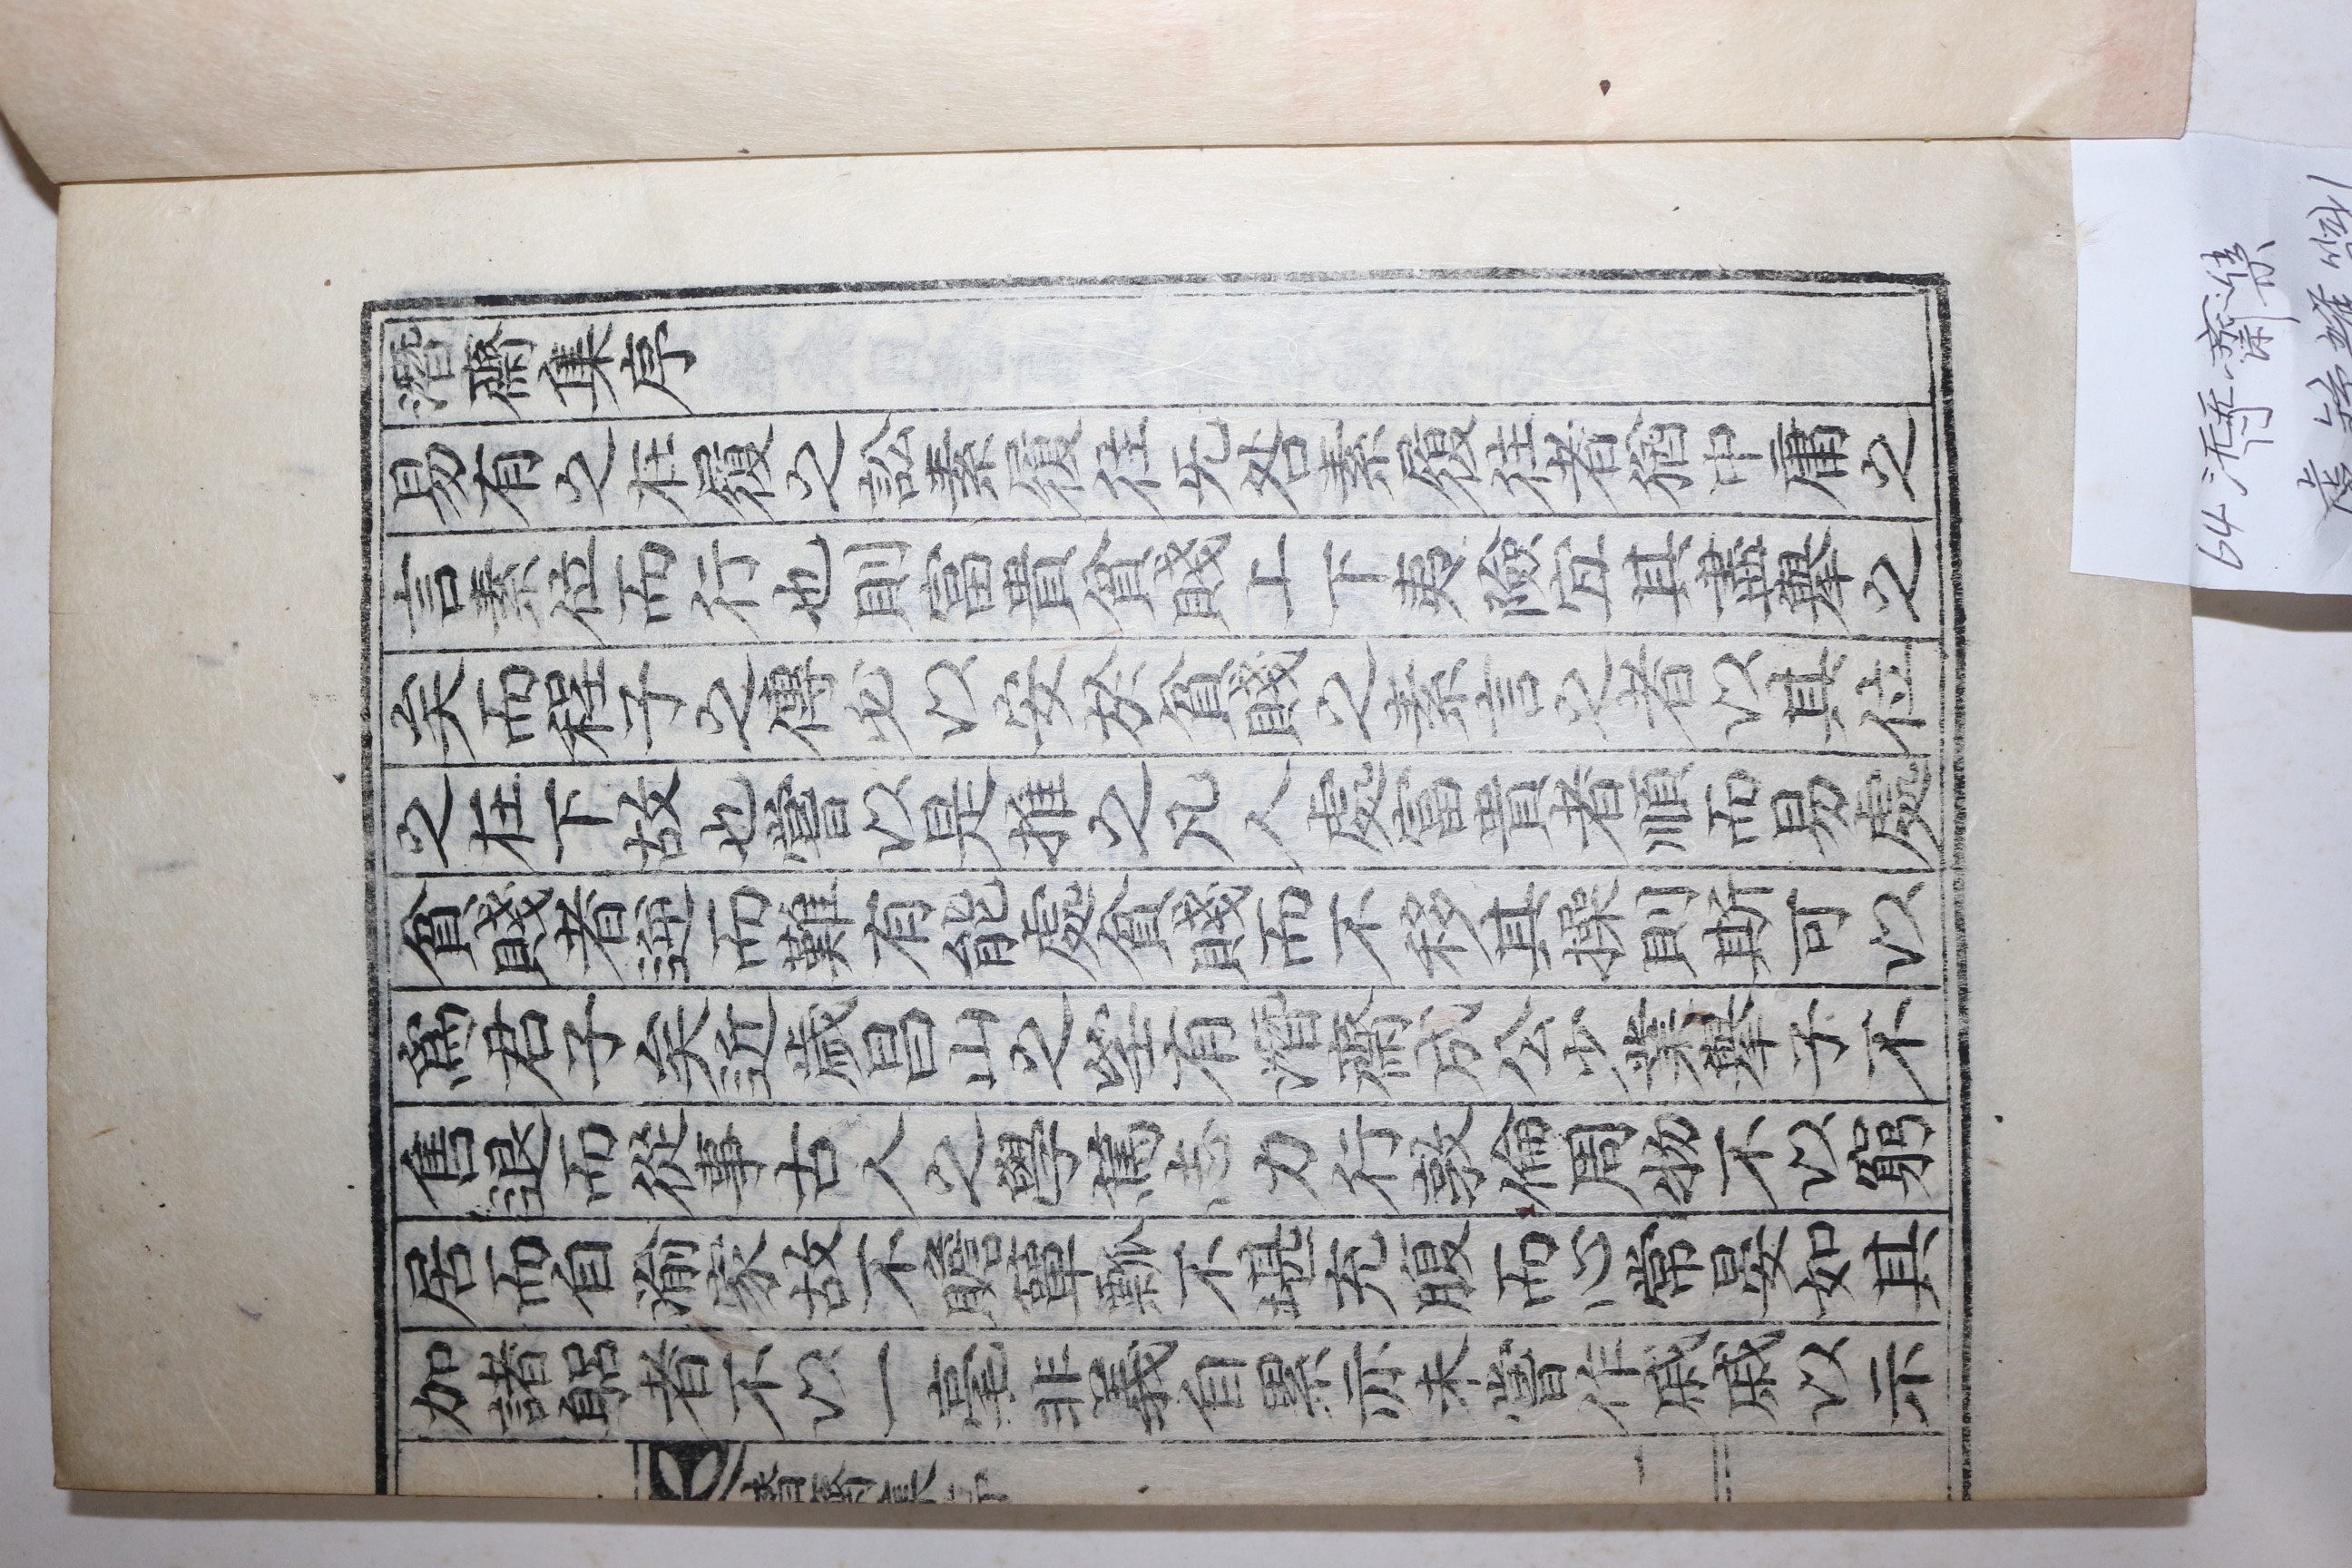 潛齋集序
易有之在履之訟素履往旡咎素履往者猶中庸之
言素位而行也則富貴貧賤上下夷險宜其盡擧之
矣而程子之傳必以安於貧賤之素言之者以其位
之在下故也嘗以是推之凡人處富貴者順而易處
貧賤者逆而難有能處貧賤而不移其操則斯可以
爲君子矣近歲昌山之望有潛齋成公少業擧子不
售退而從事古人之學篤志力行敦倫周物不以窮
居而自渝家故不贍簞瓢不堪充腹而心常晏如其
加諸躬者不以一毫非義自累亦未嘗作戚戚以示
潛齋集序
一
64 潛齋集